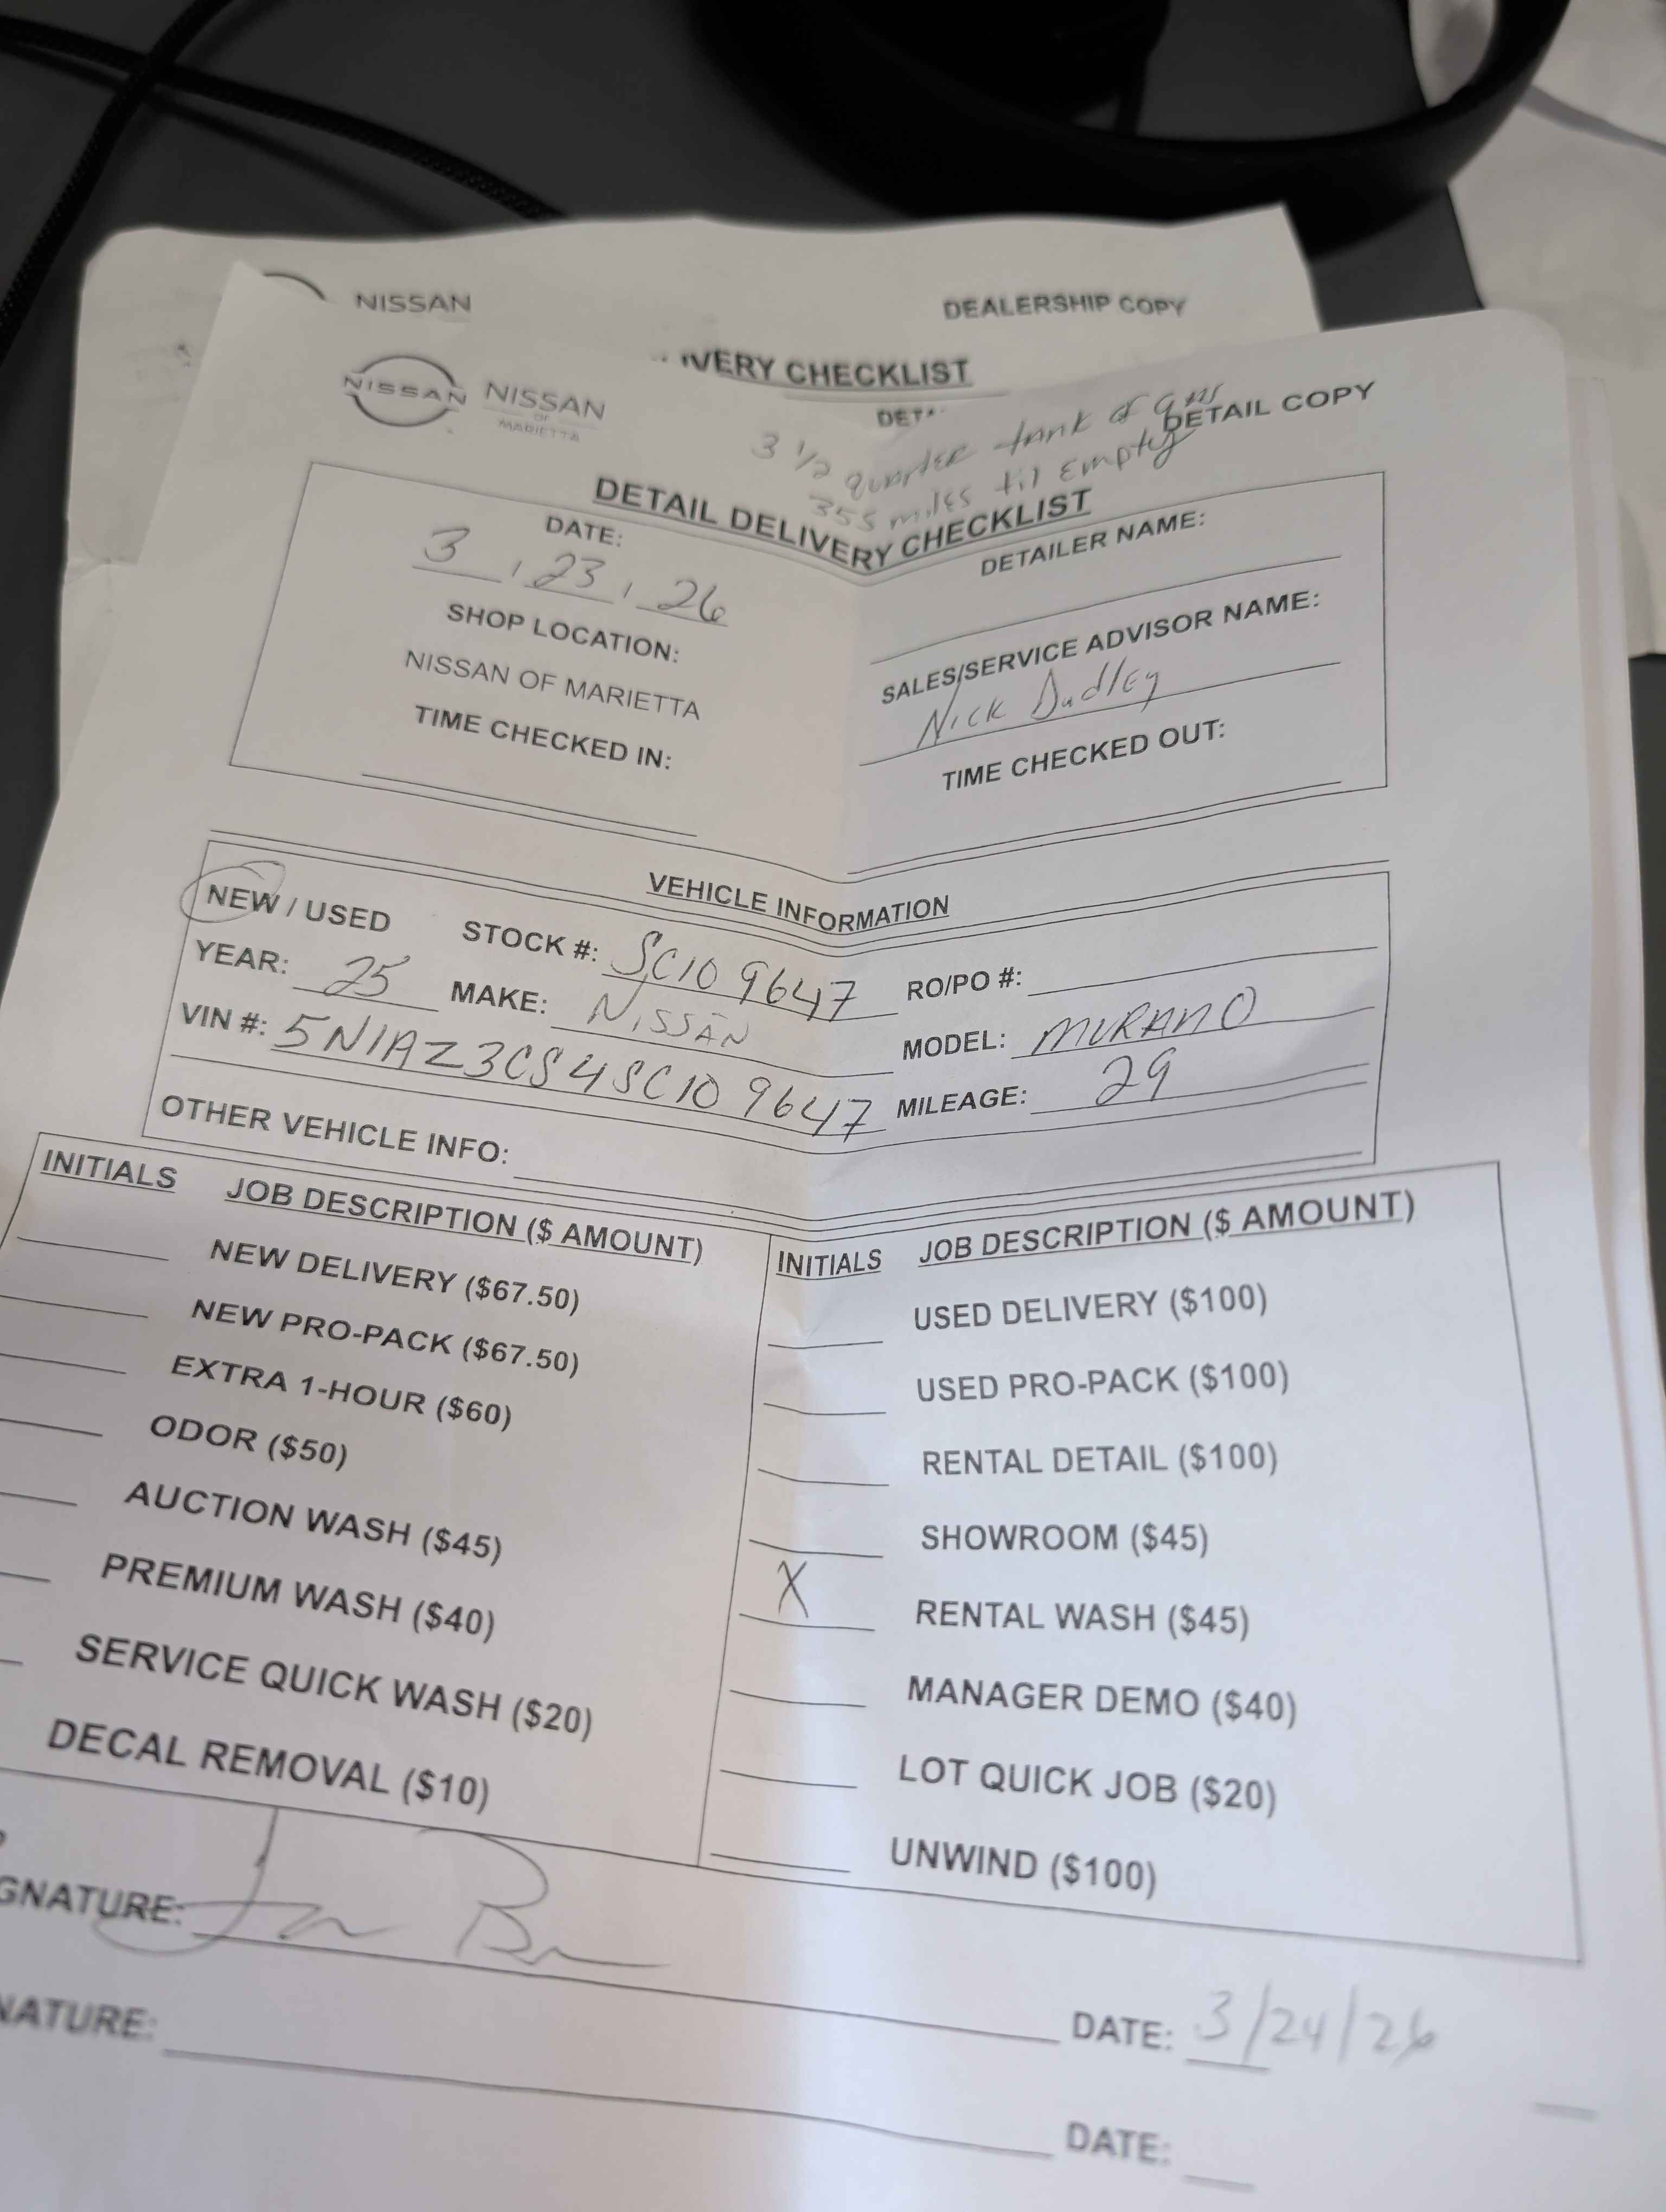 NISSAN
DEALERSHIP COPY
IVERY CHECKLIST
DET
NISSAN
NISSAN
OF
MARIETTA
DETAIL COPY
3 1/2 quarter tank of gas
355 miles til Empty
DETAIL DELIVERY CHECKLIST
DATE:
3 , 23 , 26
SHOP LOCATION:
NISSAN OF MARIETTA
TIME CHECKED IN:
DETAILER NAME:
SALES/SERVICE ADVISOR NAME:
Nick Dudley
TIME CHECKED OUT:
VEHICLE INFORMATION
NEW / USED STOCK #: SC109647 RO/PO #:
YEAR: 25 MAKE: NISSAN MODEL: MURANO
VIN #: 5N1AZ3CS4SC109647 MILEAGE: 29
OTHER VEHICLE INFO:
INITIALS JOB DESCRIPTION ($ AMOUNT)
NEW DELIVERY ($67.50)
NEW PRO-PACK ($67.50)
EXTRA 1-HOUR ($60)
ODOR ($50)
AUCTION WASH ($45)
PREMIUM WASH ($40)
SERVICE QUICK WASH ($20)
DECAL REMOVAL ($10)
INITIALS JOB DESCRIPTION ($ AMOUNT)
USED DELIVERY ($100)
USED PRO-PACK ($100)
RENTAL DETAIL ($100)
SHOWROOM ($45)
X RENTAL WASH ($45)
MANAGER DEMO ($40)
LOT QUICK JOB ($20)
UNWIND ($100)
GNATURE:
DATE: 3/24/26
NATURE:
DATE: